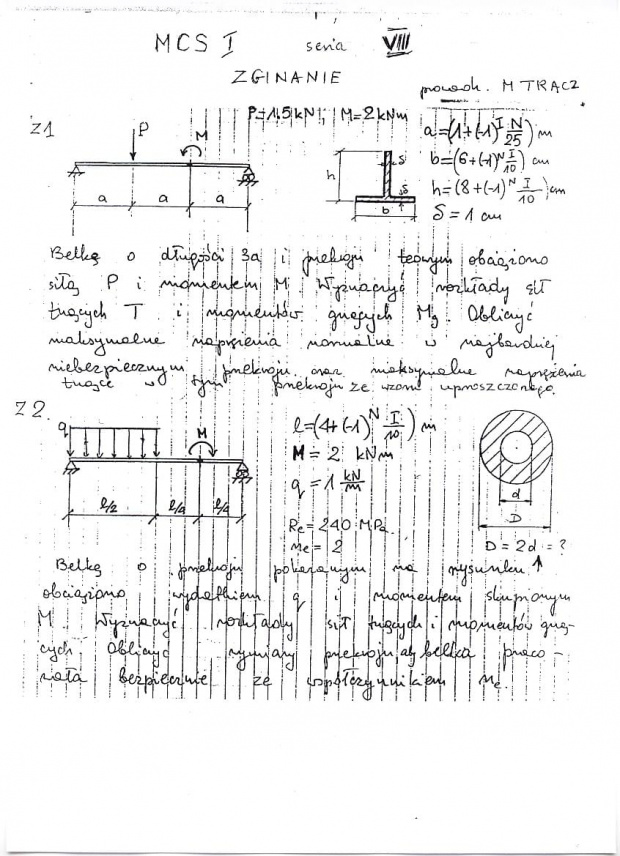 MCS I seria VIII
ZGINANIE
prowadz. M TRACZ
Z1
P=1.5kN; M=2kNm
P M
a a a
h δ δ b
a=(1+(-1)^I N/25) m
b=(6+(-1)^N I/10) cm
h=(8+(-1)^N I/10) cm
δ = 1 cm
Belkę o długości 3a i przekroju teowym obciążono
siłą P i momentem M. Wyznaczyć rozkłady sił
tnących T i momentów gnących Mg. Obliczyć
maksymalne naprężenia normalne w najbardziej
niebezpiecznym przekroju oraz maksymalne naprężenia
tnące w tym przekroju ze wzoru uproszczonego.
Z2.
q M
l/2 l/4 l/4
l=(4+(-1)^N I/10) m
M= 2 kNm
q = 1 kN/m
Re = 240 MPa
ne = 2
d
D
D = 2d = ?
Belkę o przekroju pokazanym na rysunku
obciążono wydatkiem q i momentem skupionym
M. Wyznaczyć rozkłady sił tnących i momentów gną-
cych. Obliczyć wymiary przekroju, aby belka praco-
wała bezpiecznie ze współczynnikiem ne